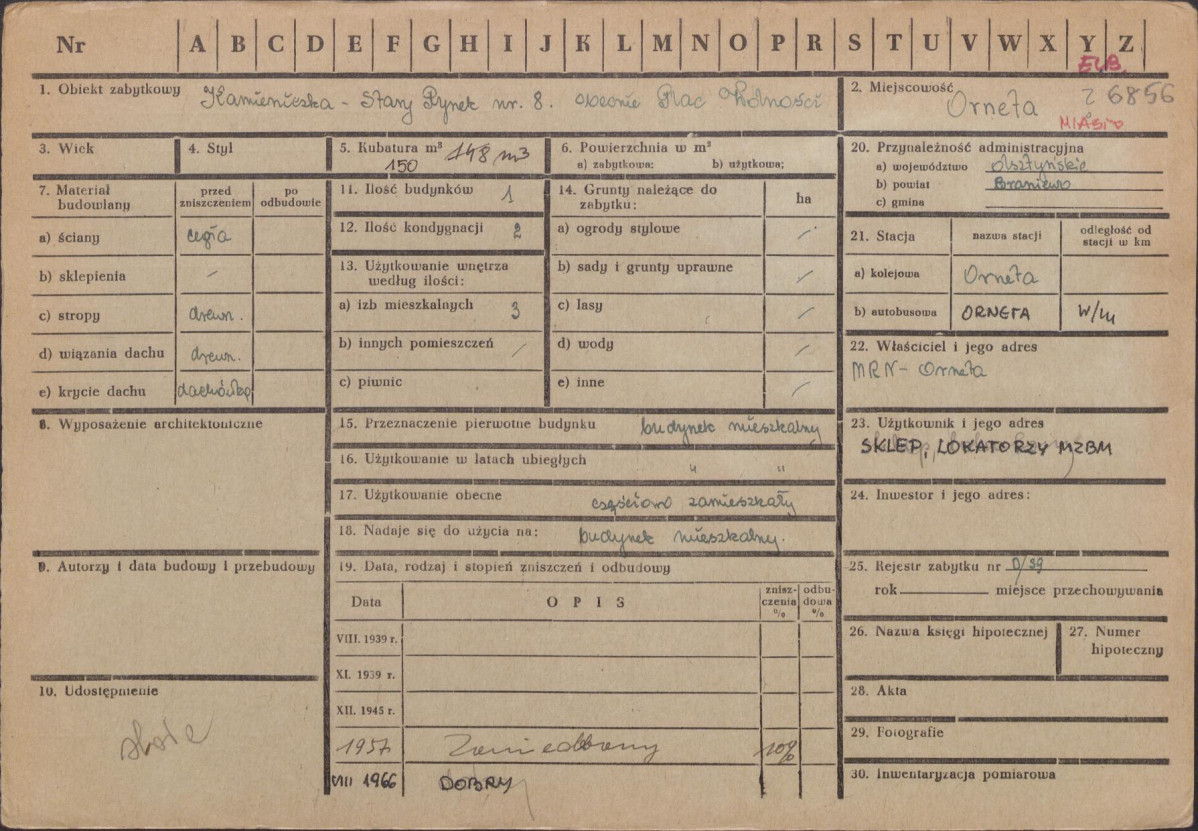 Nr A B C D E F G H I J K L M N O P R S T U V W X Y Z
ELB.
1. Obiekt zabytkowy Kamieniczka - Stary Rynek nr. 8. obecnie Plac Wolności
2. Miejscowość Orneta
26856
MIASTO
3. Wiek
4. Styl
5. Kubatura m³ 148 m3
150
6. Powierzchnia w m²
a) zabytkowa: b) użytkowa:
7. Materiał budowlany
przed zniszczeniem
po odbudowie
a) ściany cegła
b) sklepienia /
c) stropy drewn.
d) wiązania dachu drewn.
e) krycie dachu dachówka
8. Wyposażenie architektoniczne
9. Autorzy i data budowy i przebudowy
10. Udostępnienie
11. Ilość budynków 1
12. Ilość kondygnacji 2
13. Użytkowanie wnętrza
według ilości:
a) izb mieszkalnych 3
b) innych pomieszczeń /
c) piwnic
14. Grunty należące do
zabytku: ha
a) ogrody stylowe /
b) sady i grunty uprawne /
c) lasy /
d) wody /
e) inne /
15. Przeznaczenie pierwotne budynku budynek mieszkalny
16. Użytkowanie w latach ubiegłych " "
17. Użytkowanie obecne częściowo zamieszkały
18. Nadaje się do użycia na: budynek mieszkalny.
19. Data, rodzaj i stopień zniszczeń i odbudowy
Data OPIS
znisz-
czenia
%
odbu-
dowa
%
VIII. 1939 r.
XI. 1939 r.
XII. 1945 r.
1957 Zaniedbany 10%
VIII 1966 DOBRY
20. Przynależność administracyjna
a) województwo olsztyńskie
b) powiat Braniewo
c) gmina
21. Stacja
nazwa stacji
odległość od
stacji w km
a) kolejowa Orneta
b) autobusowa ORNETA W/M
22. Właściciel i jego adres
MRN - Orneta
23. Użytkownik i jego adres
SKLEP, LOKATORZY MZBM
24. Inwestor i jego adres:
25. Rejestr zabytku nr 0/39
rok miejsce przechowywania
26. Nazwa księgi hipotecznej
27. Numer
hipoteczny
28. Akta
29. Fotografie
30. Inwentaryzacja pomiarowa